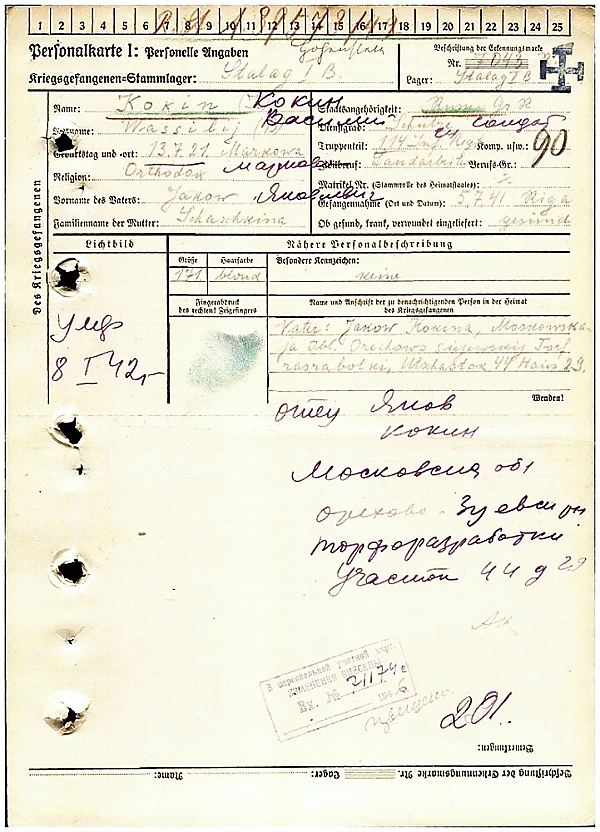 1 2 3 4 5 6 7 8 9 10 11 12 13 14 15 16 17 18 19 20 21 22 23 24 25
Personalkarte I: Personelle Angaben
Hohenstein
Beschriftung der Erkennungsmarke
Nr. 7043
Kriegsgefangenen-Stammlager: Stalag I B.
Lager: Stalag I B
Des Kriegsgefangenen
Name: Kokin Кокин
Staatsangehörigkeit:
Vorname: Wassilij Василий
Dienstgrad: солдат
Geburtstag und -ort: 13.7.21 Markowa
Truppenteil: Komp. usw.: 90
Religion: Orthodox
Zivilberuf: Landarbeiter Berufs-Gr.:
Matrikel Nr. (Stammrolle des Heimatstaates)
Vorname des Vaters: Jakow Яковлевич
Gefangennahme (Ort und Datum): 5.7.41 Riga
Familienname der Mutter: Schaschkina
Ob gesund, krank, verwundet eingeliefert: gesund
Lichtbild
Nähere Personalbeschreibung
Größe Haarfarbe Besondere Kennzeichen:
171 blond keine
Fingerabdruck
des rechten! Zeigefingers
Name und Anschrift der zu benachrichtigenden Person in der Heimat
des Kriegsgefangenen
Умер
8 I 42,-
Vater: Jakow Kokina, Moskowska-
ja Obl. Orechowo sujewskij Torf
rasrabotki, Utschastok 44 Haus 29.
Wenden!
отец Яков
Кокин
Московская обл
Орехово-Зуевский рн
торфоразработки
Участок 44 д 29
В персональной учетной карт.
ИЗМЕНЕНИЯ ВНЕСЕНЫ
Вх. № 21174с
194 6
201.
Bemerkungen:
Beschriftung der Erkennungsmarke Nr. Lager: Name: